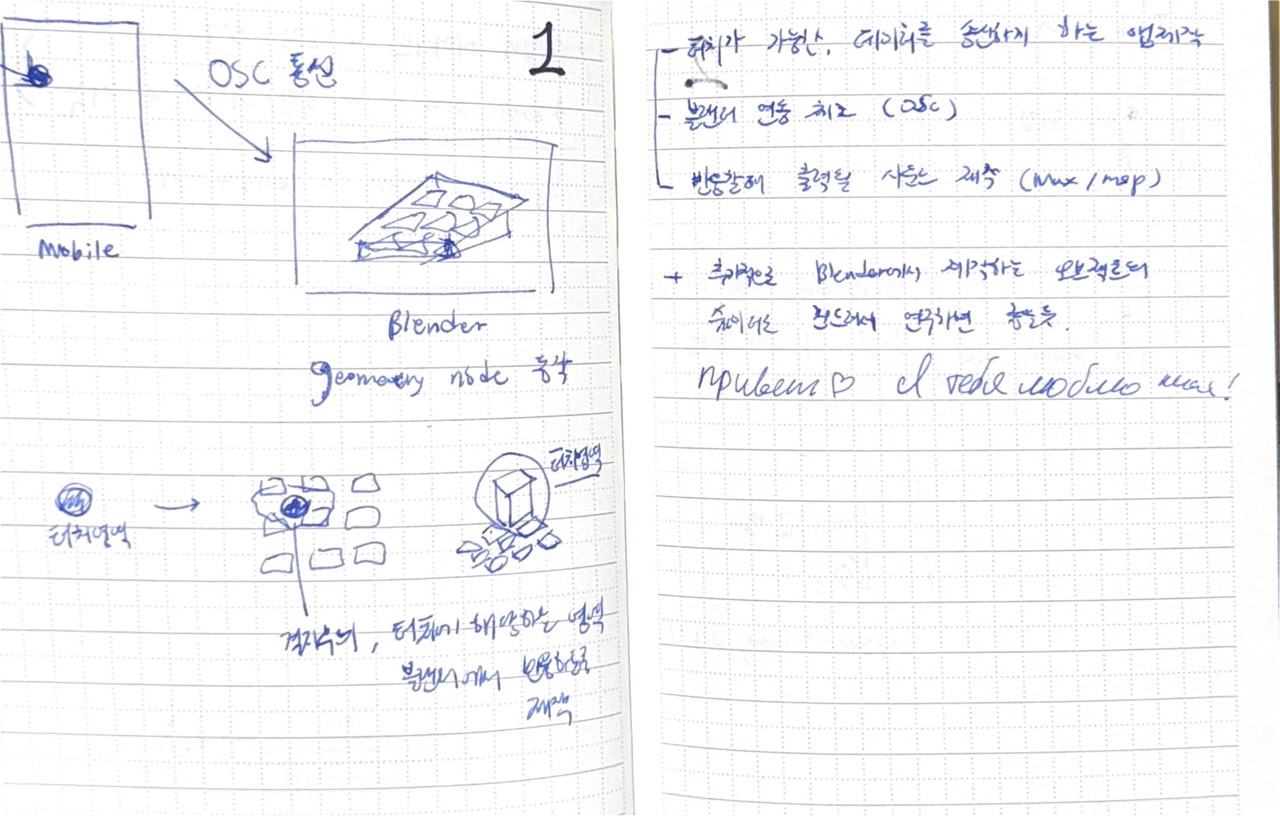 1
OSC 통신
Mobile
Blender
geometry node 동작
터치영역
터치영역
터치에 해당하는 영역
블랜더에서 반응하도록
제작
- 터치가 가능한, 데이터를 송신하지 하는 앱제작
- 블랜더 연동 치고 (OSC)
출력될 사운드 제작 (Max/msp)
+ 추가적으로 Blender에서 제작하는 오브젝트의
연구하면 좋을듯.
привет♡ Я тебя люблю !